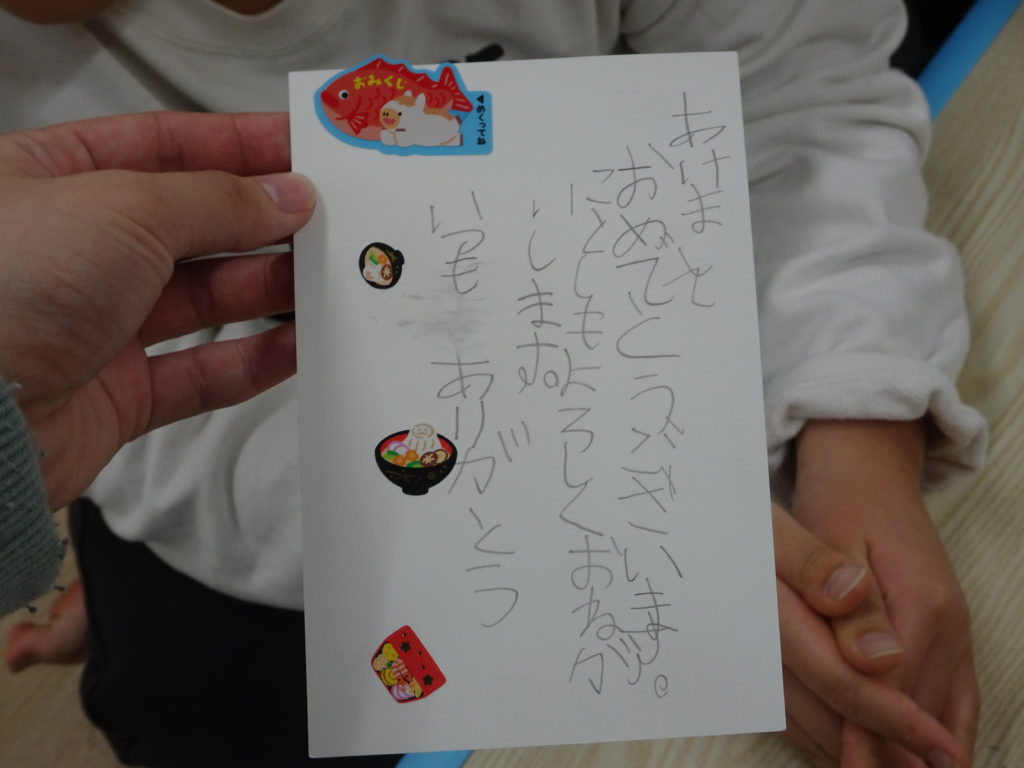 おみくじ
◀めくってね
あけまと
おめでとうございます。
ことしもよろしくおねが
いします。
いつも ありがとう